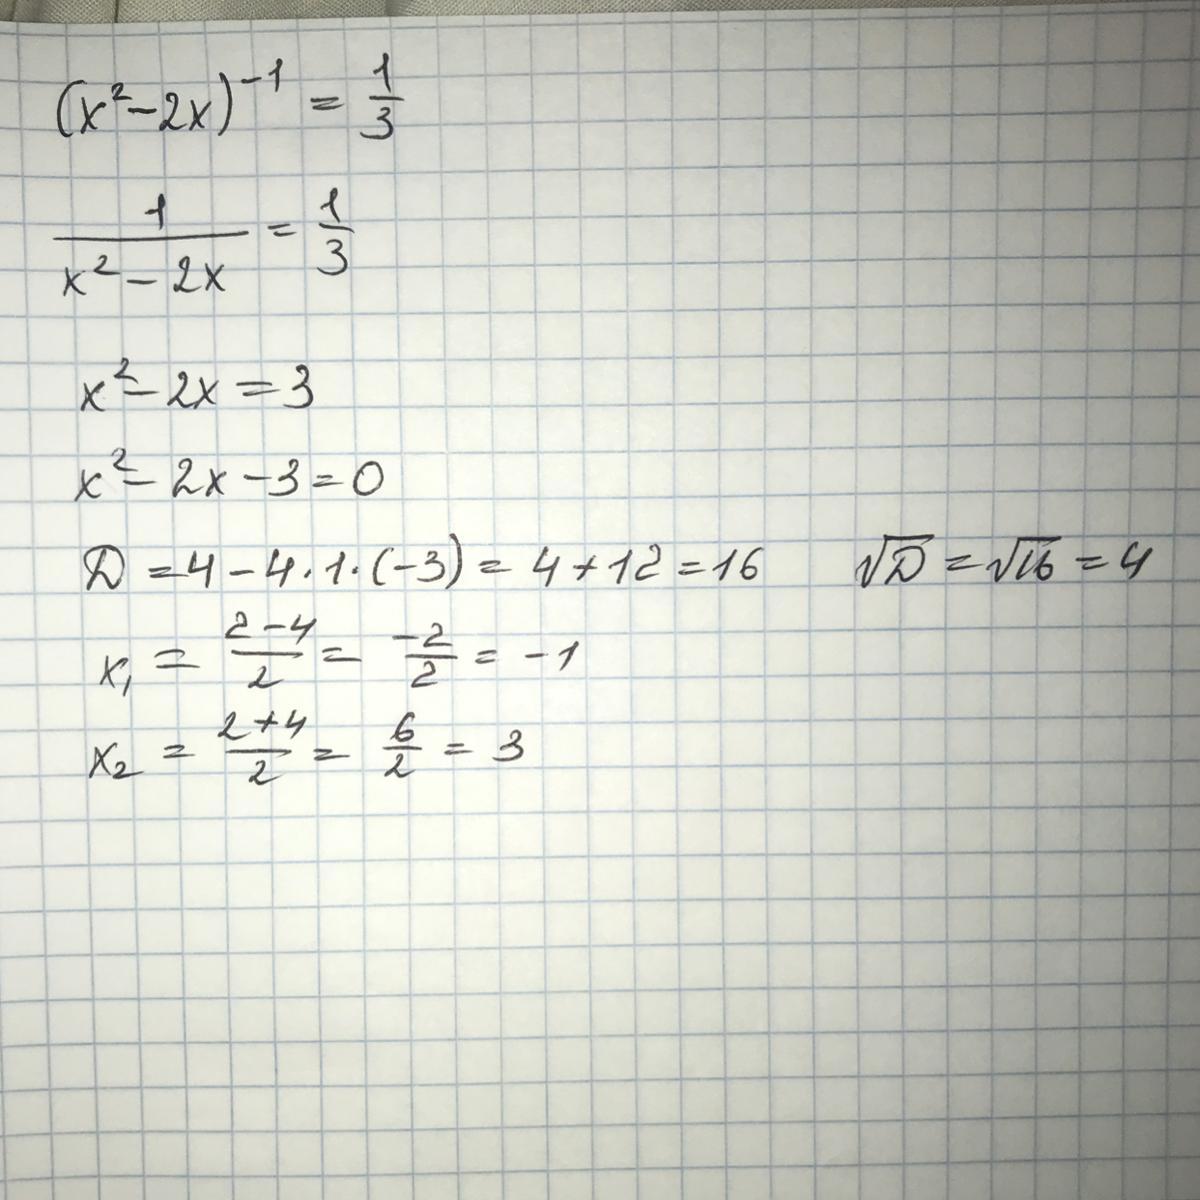 (x²-2x)⁻¹ = 1/3
1/(x²-2x) = 1/3
x²-2x=3
x²-2x-3=0
D=4-4·1·(-3)=4+12=16 √D=√16=4
x₁ = (2-4)/2 = -2/2 = -1
x₂ = (2+4)/2 = 6/2 = 3